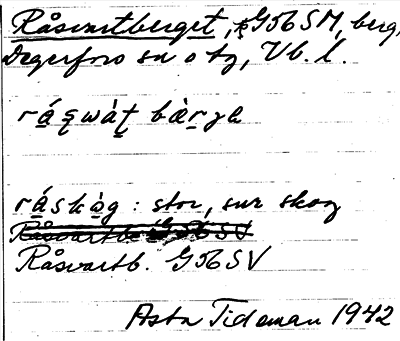 Råsvartberget, G56 SM, berg,
Degerfors sn o tg, Vb. l.
rá̱s̨wàt̨ bæ̀ṟʒə
rá̱skò̱g : stor, sur skog
Råsvartb. G56 SV
Asta Tideman 1942